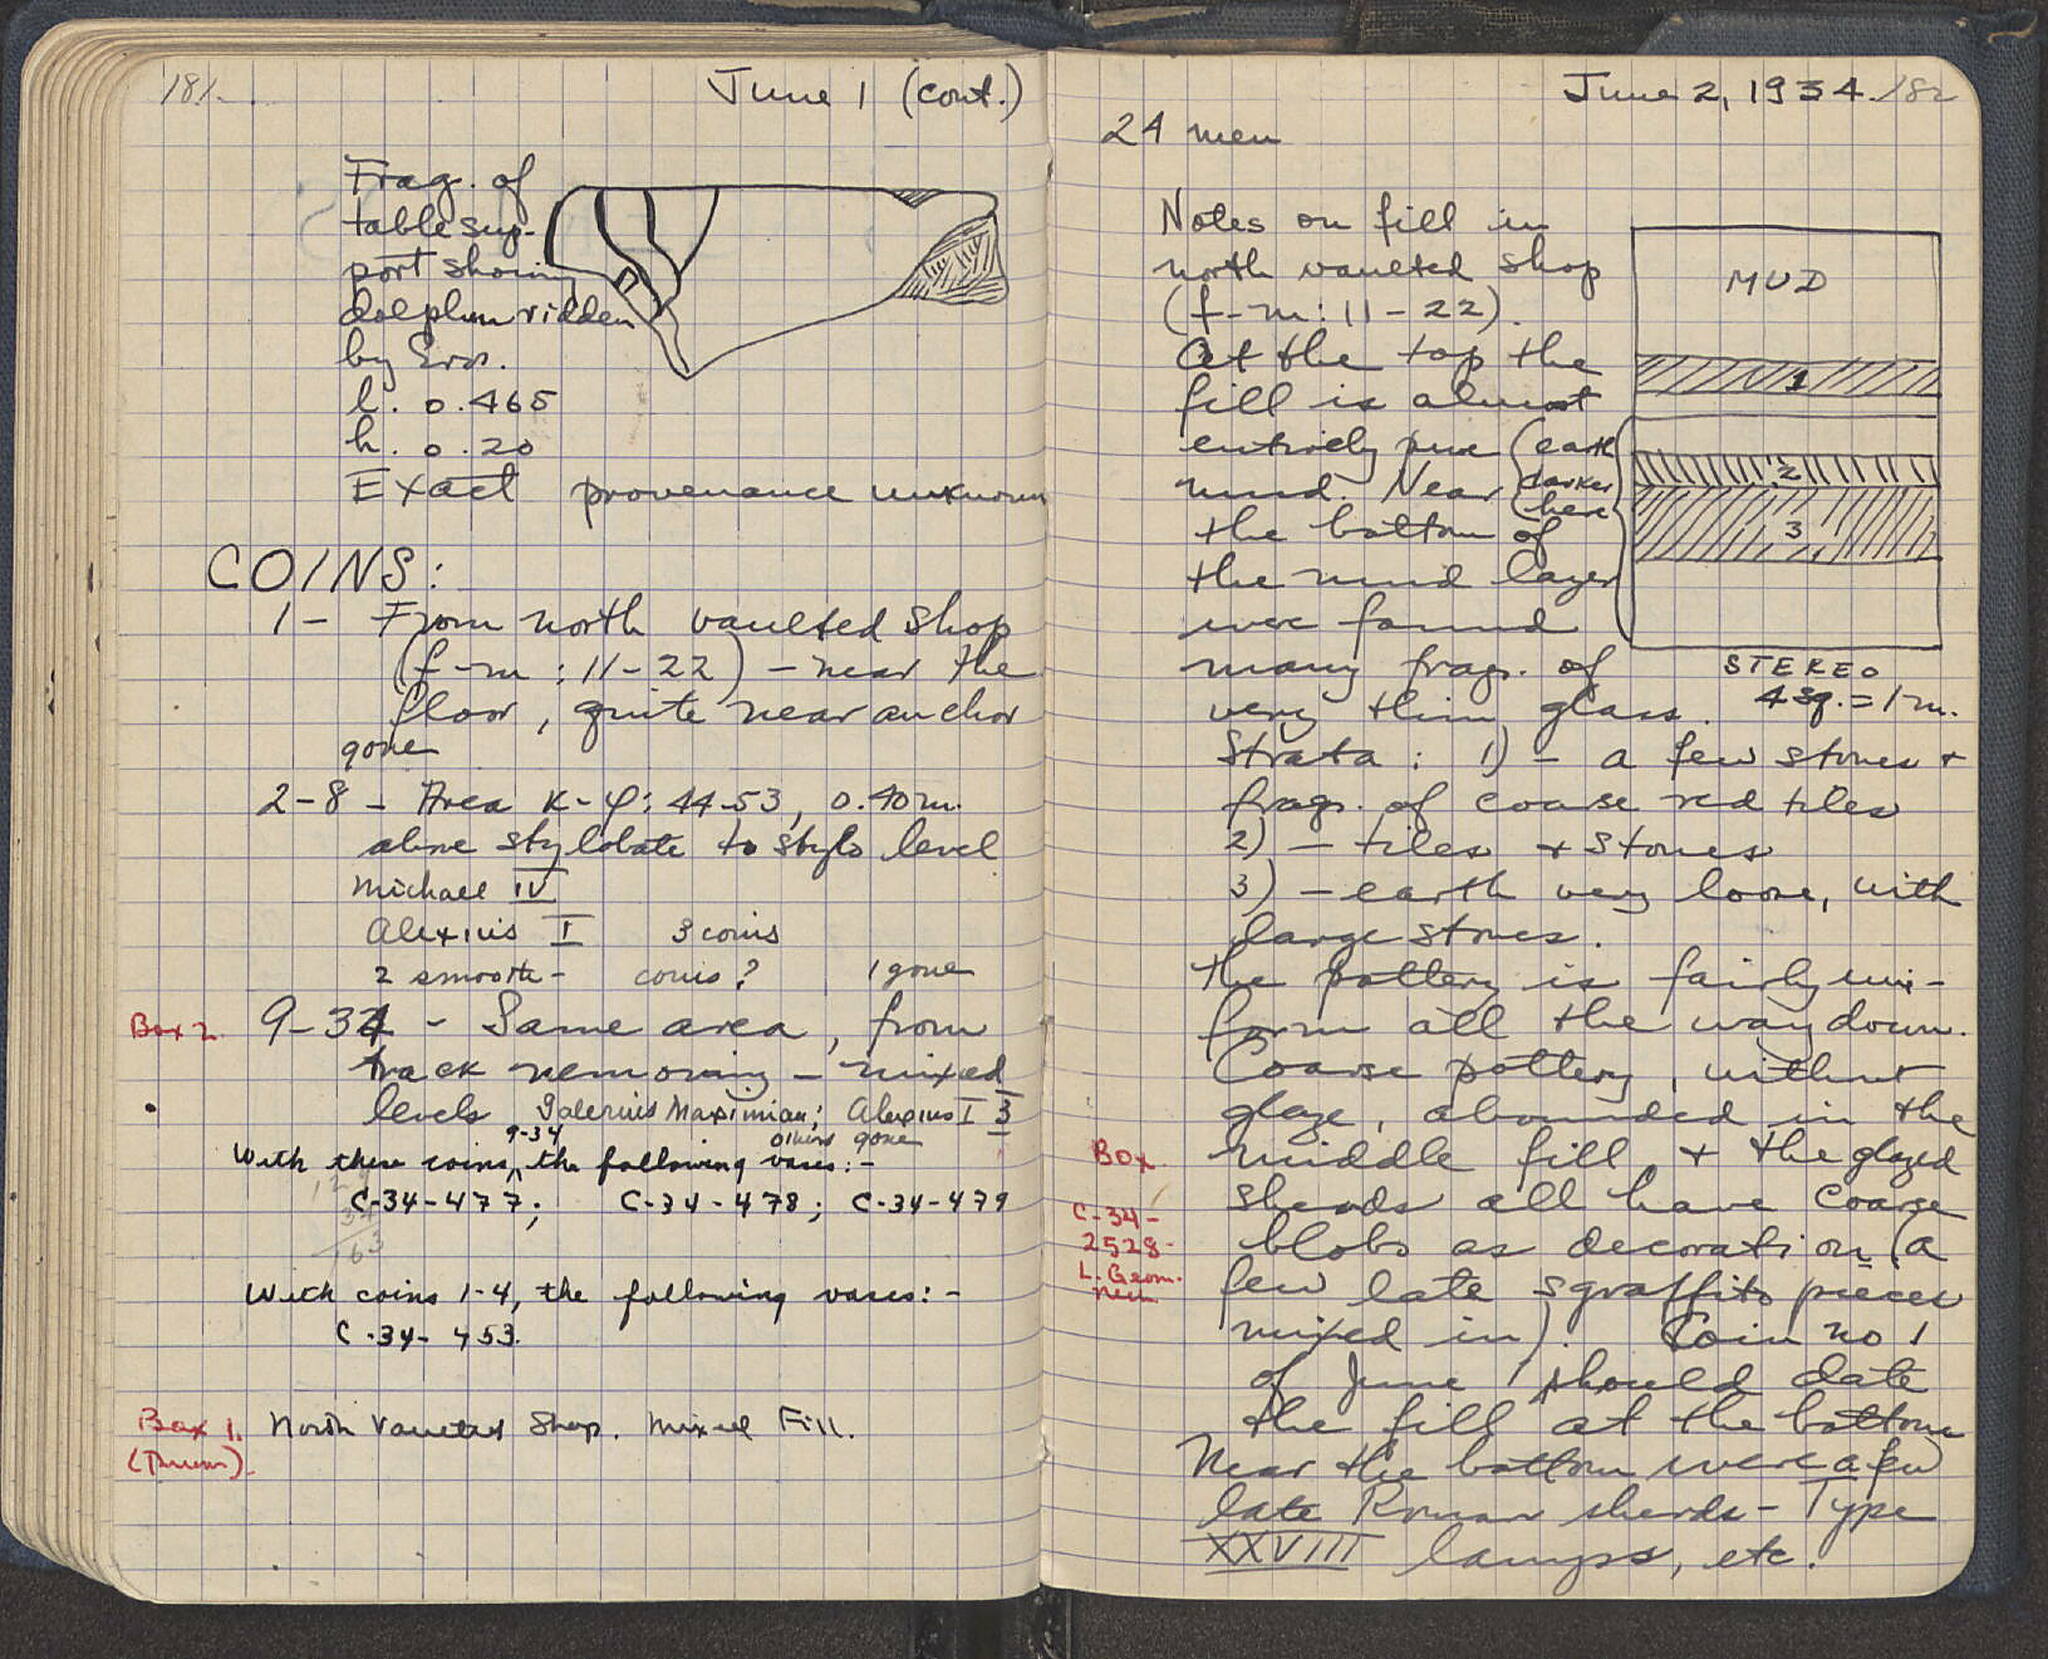 181.
June 1 (cont.)
Frag. of
table sup-
port showing
dolphin ridden
by Eros.
l. 0.465
h. 0.20
Exact provenance unknown
COINS:
1- From north vaulted shop
(f-m : 11-22) - near the
floor, quite near anchor
gone
2-8 - Area K-φ: 44-53, 0.40 m.
above stylobate to stylo level
Michael IV
Alexius I 3 coins
2 smooth - coins? 1 gone
Box 2 9-34 - Same area, from
track removing - mixed
levels Galerius Maximian; Alexius I 3
others gone
With these coins 9-34 the following vases:-
C-34-477; C-34-478; C-34-479
163
With coins 1-4, the following vases:-
C-34-453.
Box 1. North Vaulted Shop. Mixed Fill.
June 2, 1934. 182
24 men
Notes on fill in
north vaulted shop
(f-m: 11-22).
At the top the
fill is almost
entirely pure
mud. Near
the bottom of
the mud layer
were found
many frags. of
very thin glass.
MUD
1
(earth
darker
here
2
3
STEREO
4 sq. = 1 m.
Strata: 1) - a few stones +
frags. of coarse red tiles
2) - tiles + stones
3) - earth very loose, with
large stones.
The pottery is fairly uni-
form all the way down.
Coarse pottery, without
glaze, abounded in the
Box middle fill, + the glazed
sherds all have coarse
C-34-
2528-
L. Geom.
blobs as decoration (a
few late sgraffito pieces
mixed in). Coin no 1
of June 1 should date
the fill at the bottom
Near the bottom were a few
late Roman sherds - Type
XXVIII lamps, etc.